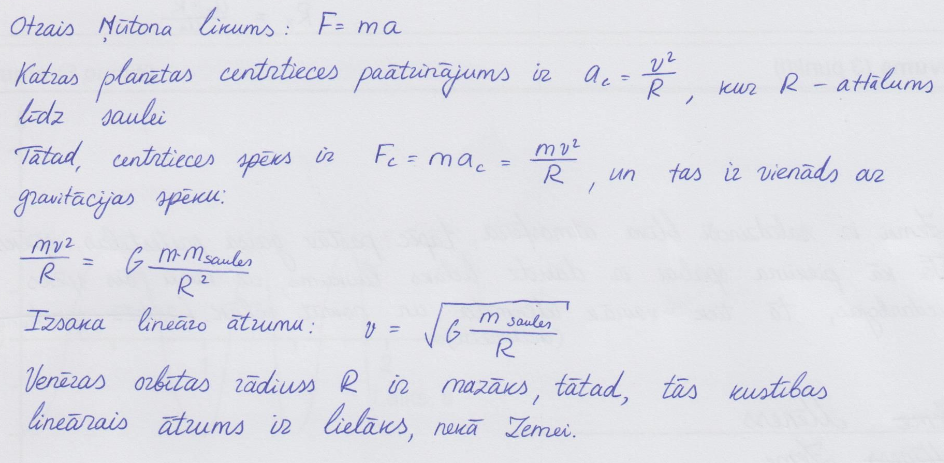 Otrais Ņūtona likums: F = ma
Katras planētas centrtieces paātrinājums ir a_c = v²/R, kur R – attālums
līdz saulei
Tātad, centrtieces spēks ir F_c = ma_c = mv²/R, un tas ir vienāds ar
gravitācijas spēku:
mv²/R = G m·m_saules/R²
Izsaka lineāro ātrumu: v = √(G m_saules/R)
Venēras orbītas rādiuss R ir mazāks, tātad, tās kustības
lineārais ātrums ir lielāks, nekā Zemei.